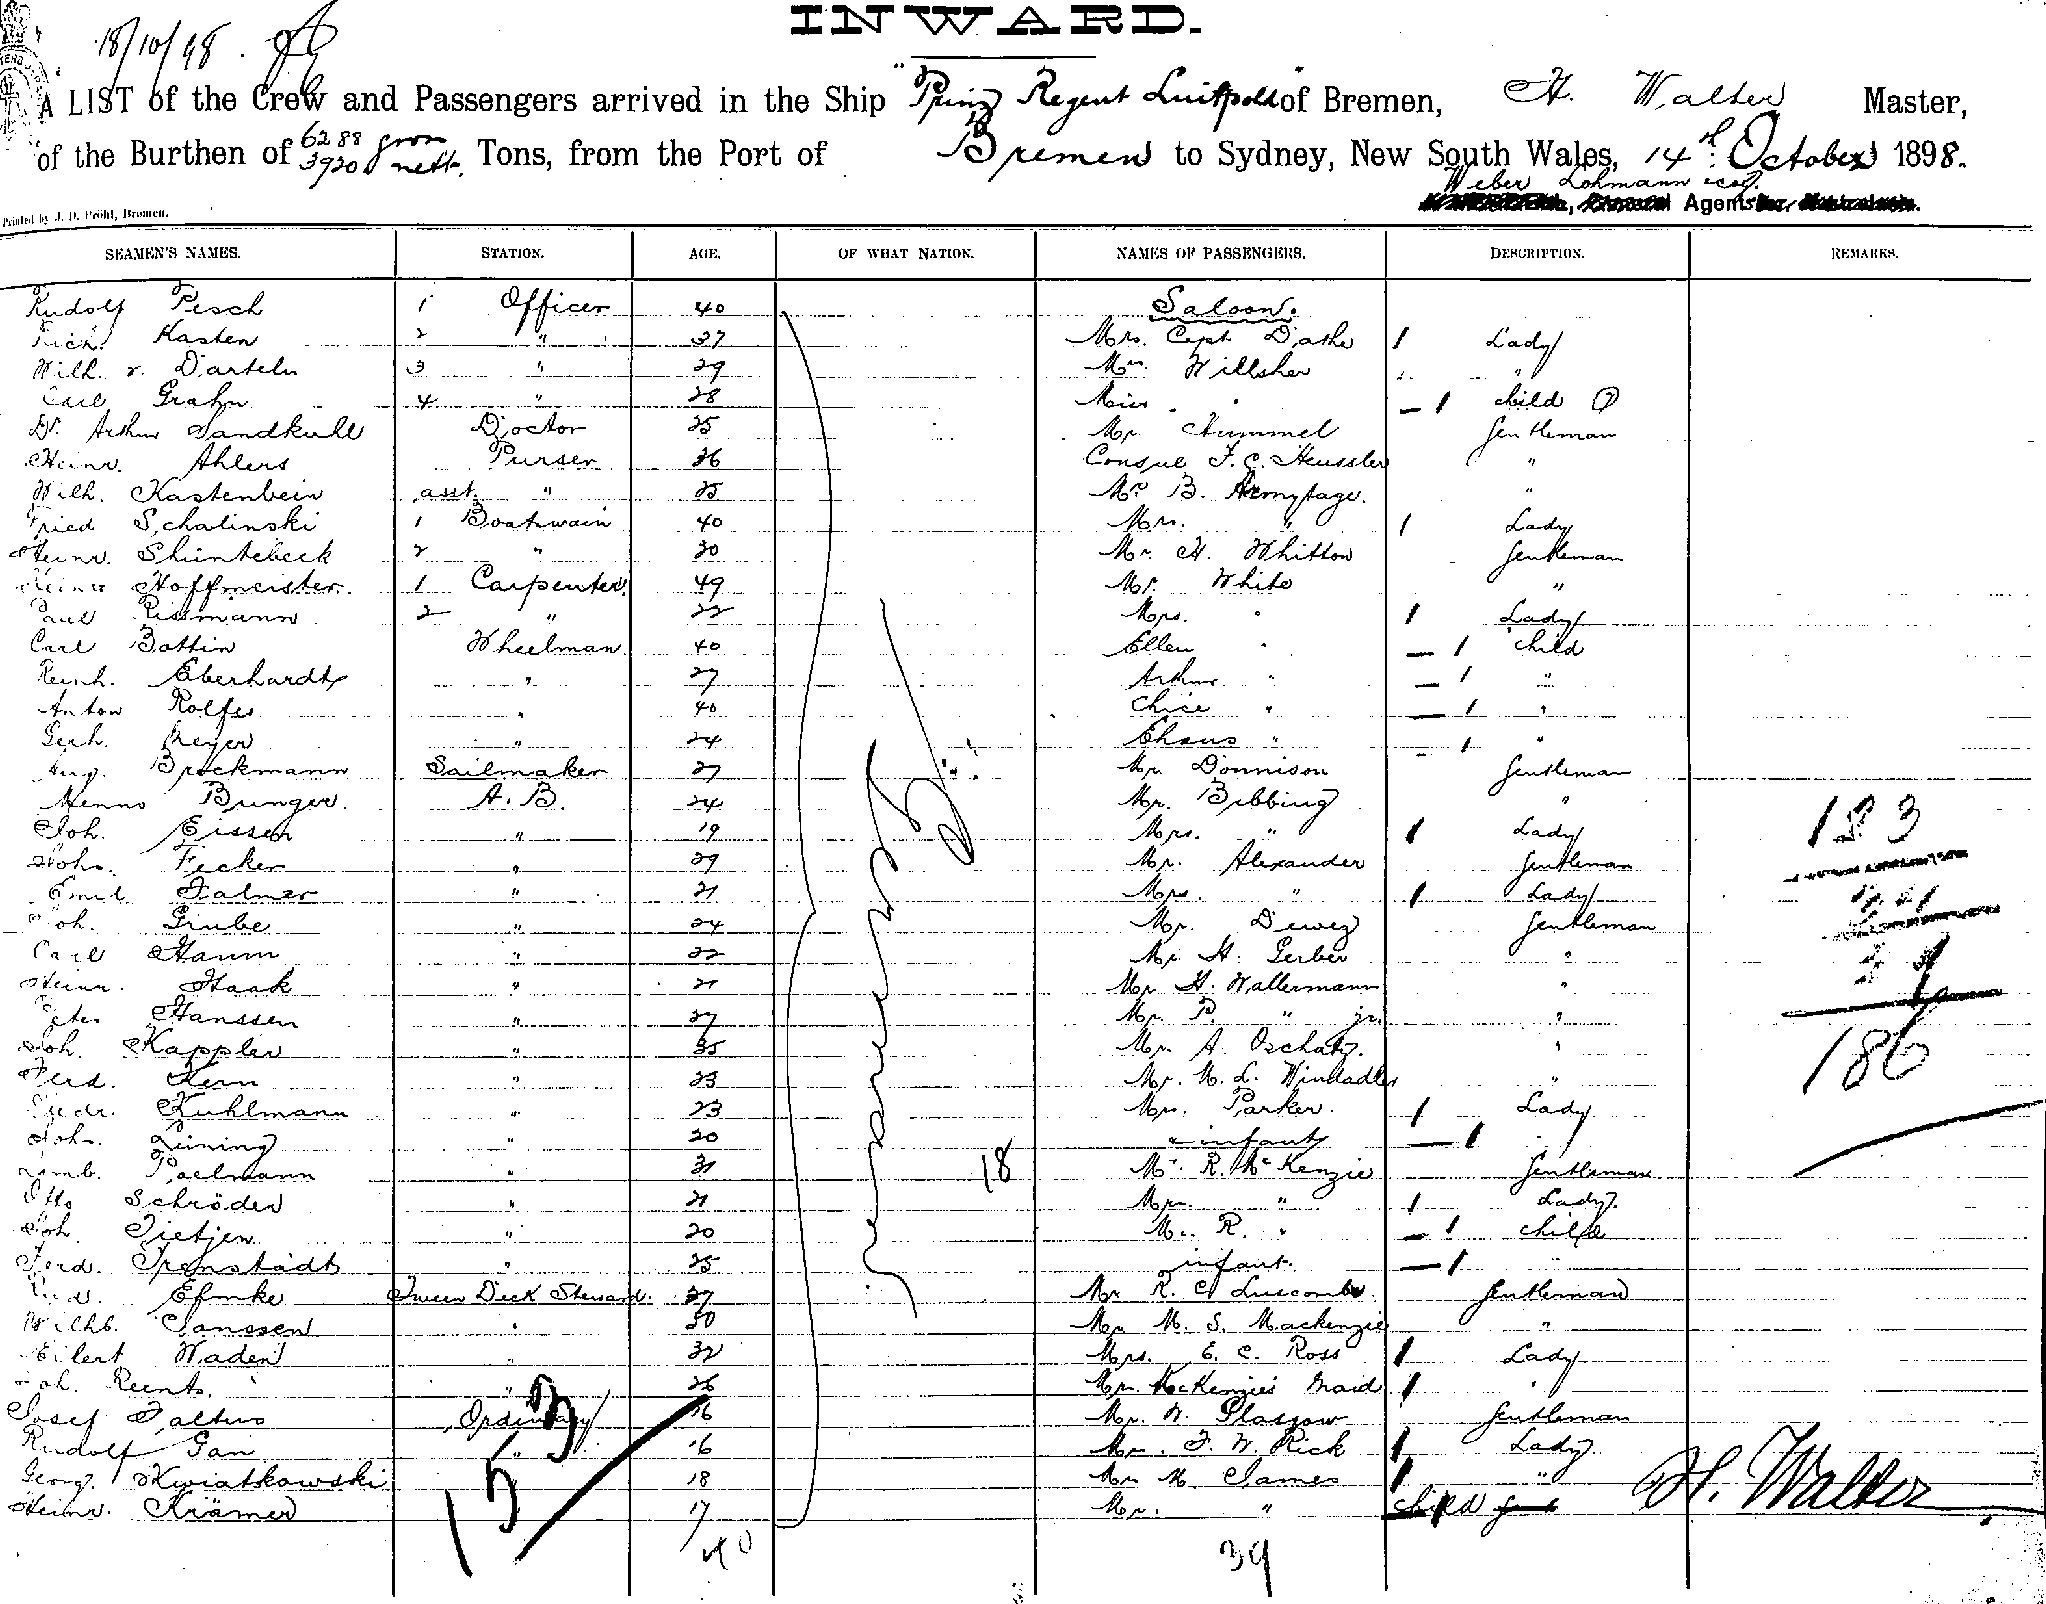 INWARD.
18/10/98.
A LIST of the Crew and Passengers arrived in the Ship "Prinz Regent Luitpold" of Bremen, H. Walter Master,
of the Burthen of 6288 gross 3920 nett. Tons, from the Port of Bremen to Sydney, New South Wales, 14th October 1898.
Weber Lohmann &co.
Agents
Printed by J. D. Pröhl, Bremen.
SEAMEN'S NAMES. STATION. AGE. OF WHAT NATION. NAMES OF PASSENGERS. DESCRIPTION. REMARKS.
Rudolf Pesch 1 Officer 40 Saloon.
Kasten 2 " 37 Mrs. Capt Dathe 1 Lady
Wilh. v. Darteln 3 " 29 Mrs. Willsher "
Carl Grahn 4 " 28 " — 1 child
Dr. Arthur Sandkuhl Doctor 25 Mr. Hummel Gentleman
Heinr. Ahlers Purser 36 Consul F. C. Heussler "
Wilh. Kastenbein asst. " 25 Mr B. Armytage. "
Fried Schalinski 1 Boatswain 40 Mrs. " 1 Lady
Heinr. Shüntebeck 2 " 30 Mr. H. Whitton Gentleman
Hoffmeister 1 Carpenter 49 Mr. White "
Paul Rissmann 2 " 22 Mrs. " 1 Lady
Carl Bottin Wheelman 40 Ellen " — 1 child
Reinh. Eberhardt " 27 Arthur " — 1 "
Anton Rolfes " 40 " — 1 "
Gerh. Meyer " 24 " — 1 "
Aug. Brockmann Sailmaker 27 Mr Donnison Gentleman
Menno Bunger. A. B. 24 Mr. Bibbing "
Joh. Eissen " 19 Mrs. " 1 Lady
Johs. Fecker " 29 Mr. Alexander Gentleman
Emil Falmer " 21 Mrs. " 1 Lady
Joh. Grube " 24 Mr. Dewez Gentleman
Carl Hamm " 22 Mr H. Gerber "
Heinr. Haak " 21 Mr H. Wallermann "
Peter Hanssen " 27 Mr. P. " jr. "
Joh. Kappler " 35 Mr. A. Oschatz. "
Ferd. Kern " 23 Mr. M. L. "
Fredr. Kuhlmann " 23 Mrs. Parker. 1 Lady
Joh. Leining " 20 " infant — 1
Lamb. Poelmann " 31 18 Mr. R. McKenzie Gentleman
Otto Schröder " 21 Mrs. " 1 Lady.
Joh. Tietjen " 20 R. " — 1 child
Ferd. Tronstädt " 25 infant. — 1
Efmke Tween Deck Steward. 27 Mr R. C Luscombe Gentleman
Wilhb. Janssen " 30 Mr M. S. Mackenzie "
Eilert Waden " 32 Mrs. E. C. Ross 1 Lady
Joh. Reents. " 26 Mrs. McKenzie's Maid 1 "
Josef Falters Ordinary 16 Mr. W. Glasgow Gentleman
Rudolf Gan " 16 Mrs. F. W. Rick 1 Lady
Georg. Kwiatkowski 18 Mrs M. James 1 "
Heinr. Krämer 17 " child
133
186
H. Walter
153
40
39